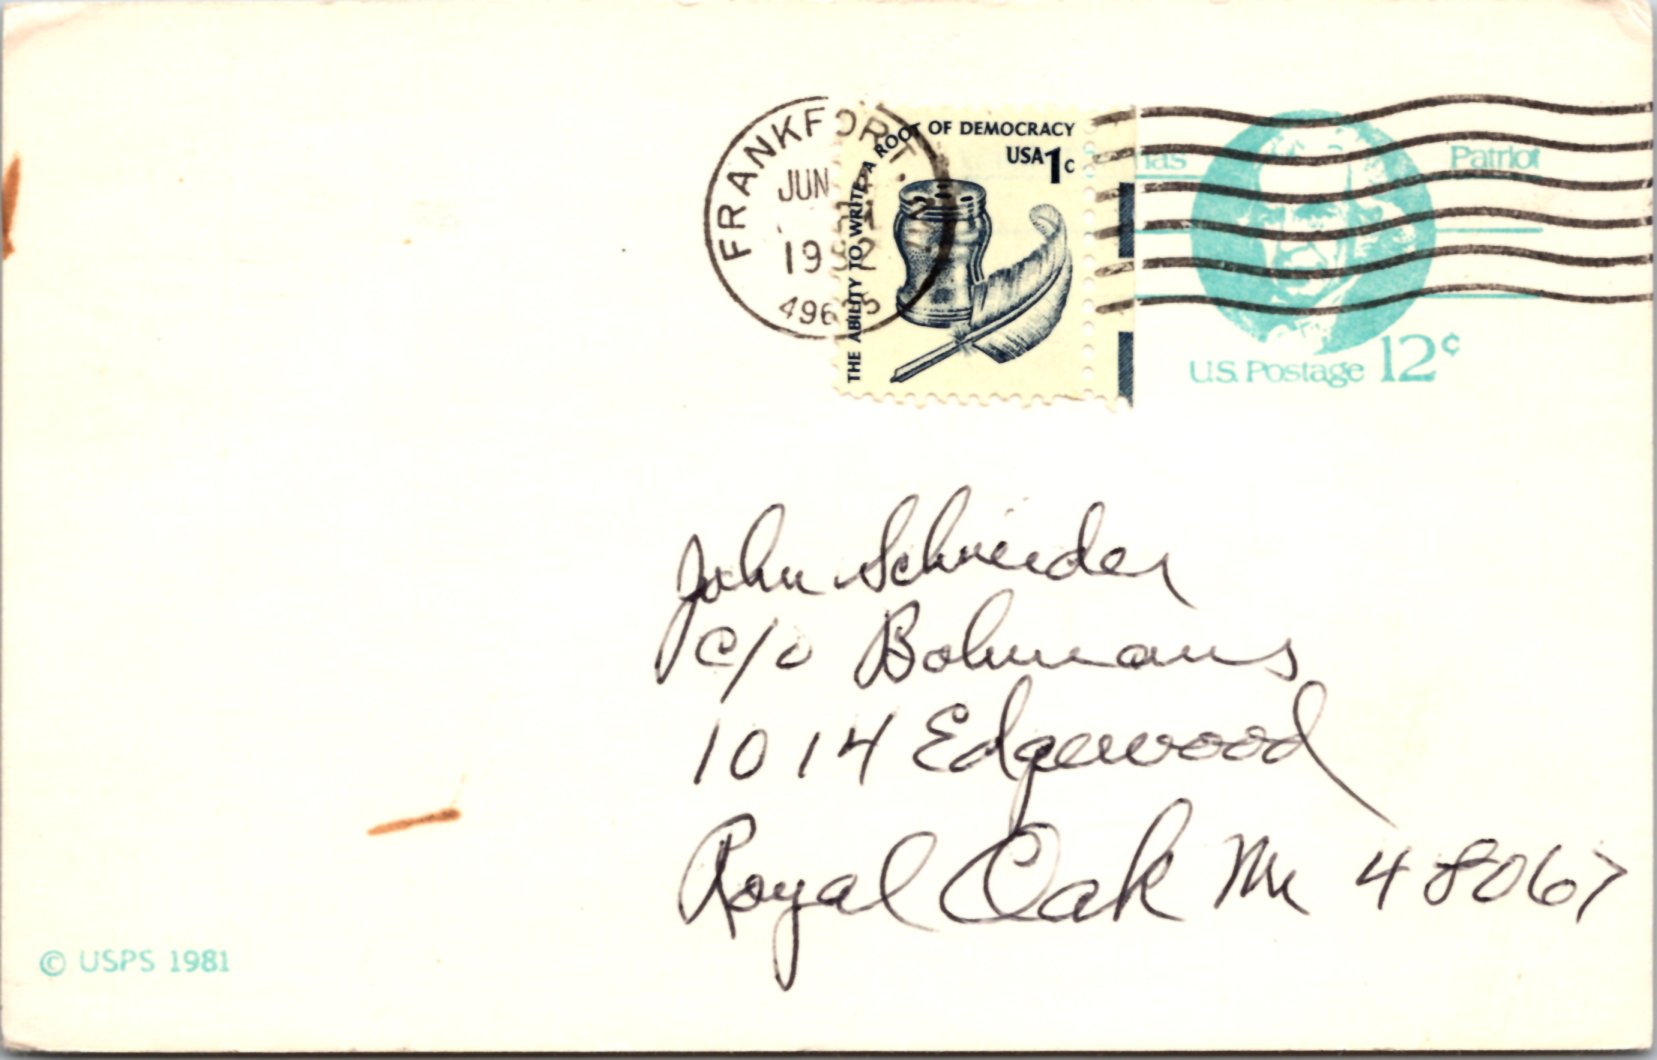 FRANKFORT.
JUN
19
THE ABILITY TO WRITE. A ROOT OF DEMOCRACY
USA 1c
Patriot
U.S. Postage 12¢
John Schneider
c/o Bohmans
1014 Edgewood
Royal Oak Mi 48067
© USPS 1981